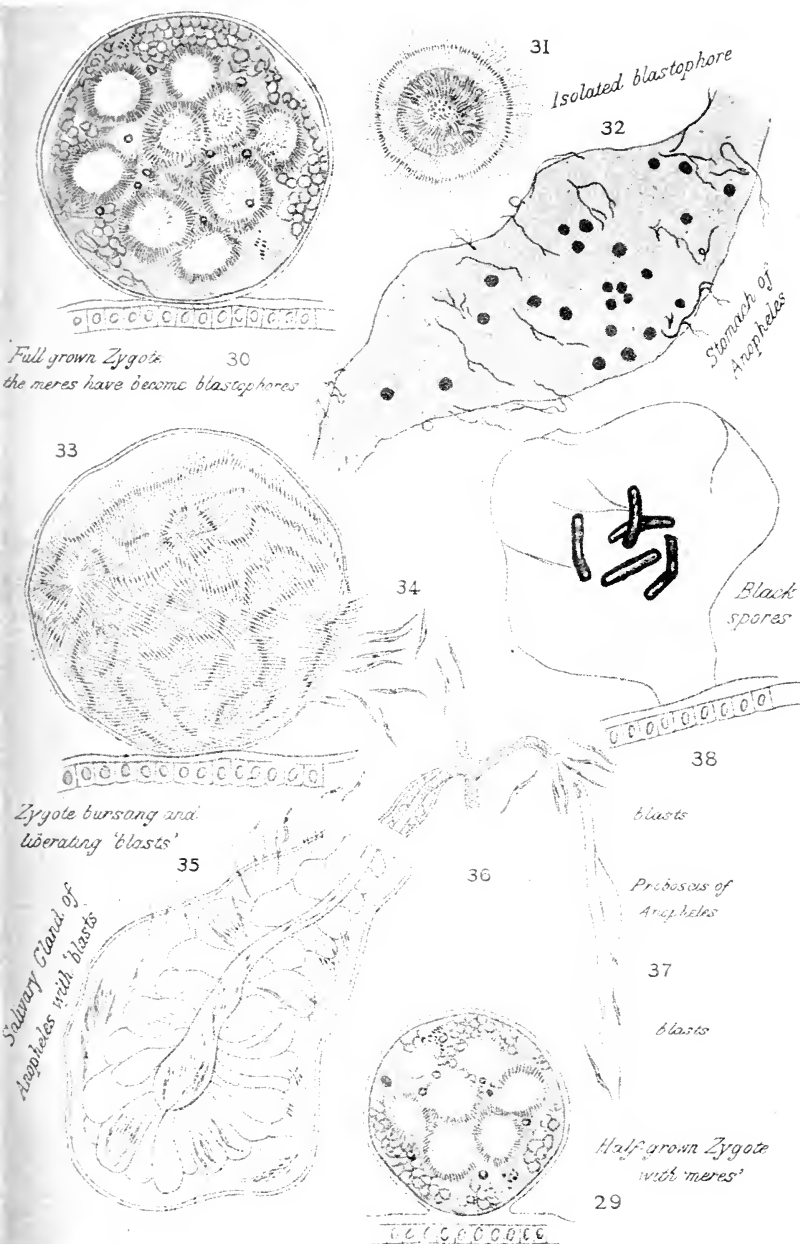 31
Isolated blastophore
32
Stomach of
Anopheles
Full grown Zygote
30
the meres have become blastophores
33
34
Black
spores
38
Zygote bursang and
liberating 'blasts'
35
Salivary Gland of
Anopheles with 'blasts
36
blasts
Proboscis of
Anopheles
37
blasts
Half grown Zygote
with 'meres'
29